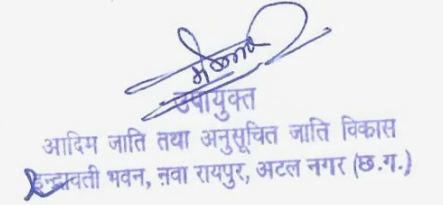 उपायुक्त
आदिम जाति तथा अनुसूचित जाति विकास
इन्द्रावती भवन, नवा रायपुर, अटल नगर (छ.ग.)